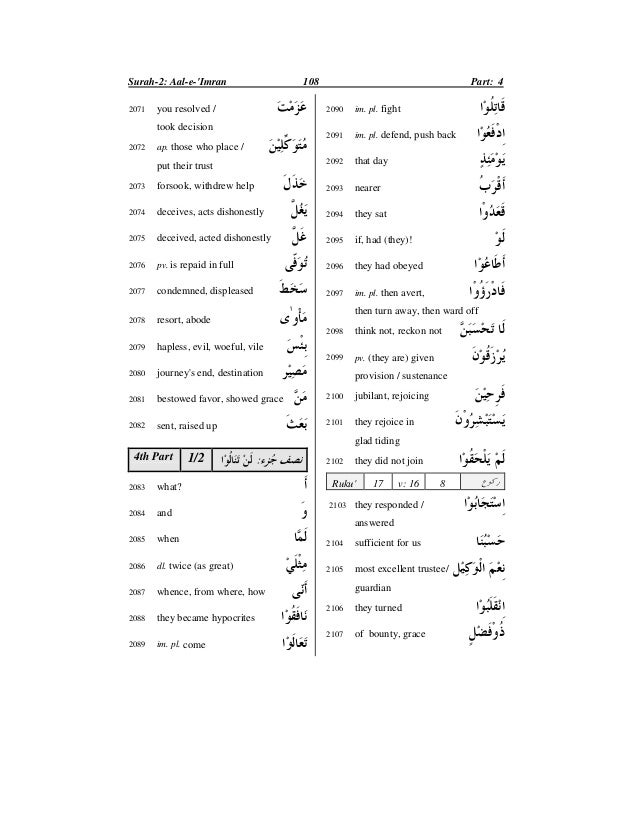 Surah-2: Aal-e-'Imran 108 Part: 4
2071 you resolved / عَزَمْتَ
took decision
2072 ap. those who place / مُتَوَكِّلِيْنَ
put their trust
2073 forsook, withdrew help خَذَلَ
2074 deceives, acts dishonestly يَغُلَّ
2075 deceived, acted dishonestly غَلَّ
2076 pv. is repaid in full تُوَفّٰى
2077 condemned, displeased سَخَطَ
2078 resort, abode مَأْوٰى
2079 hapless, evil, woeful, vile بِئْسَ
2080 journey's end, destination مَصِيْر
2081 bestowed favor, showed grace مَنَّ
2082 sent, raised up بَعَثَ
4th Part 1/2 نصف جُزء: لَنْ تَنَالُوْا
2083 what? أَ
2084 and وَ
2085 when لَمَّا
2086 dl. twice (as great) مِثْلَيْ
2087 whence, from where, how أَنّٰى
2088 they became hypocrites نَافَقُوْا
2089 im. pl. come تَعَالَوْا
2090 im. pl. fight قَاتِلُوْا
2091 im. pl. defend, push back اِدْفَعُوْا
2092 that day يَوْمَئِذٍ
2093 nearer أَقْرَبُ
2094 they sat قَعَدُوْا
2095 if, had (they)! لَوْ
2096 they had obeyed أَطَاعُوْا
2097 im. pl. then avert, فَادْرَؤُوْا
then turn away, then ward off
2098 think not, reckon not لَا تَحْسَبَنَّ
2099 pv. (they are) given يُرْزَقُوْنَ
provision / sustenance
2100 jubilant, rejoicing فَرِحِيْنَ
2101 they rejoice in يَسْتَبْشِرُوْنَ
glad tiding
2102 they did not join لَمْ يَلْحَقُوْا
Ruku' 17 v: 16 8 ركوع
2103 they responded / اِسْتَجَابُوْا
answered
2104 sufficient for us حَسْبُنَا
2105 most excellent trustee/ نِعْمَ الْوَكِيْلُ
guardian
2106 they turned اِنْقَلَبُوْا
2107 of bounty, grace ذُوْفَضْلٍ